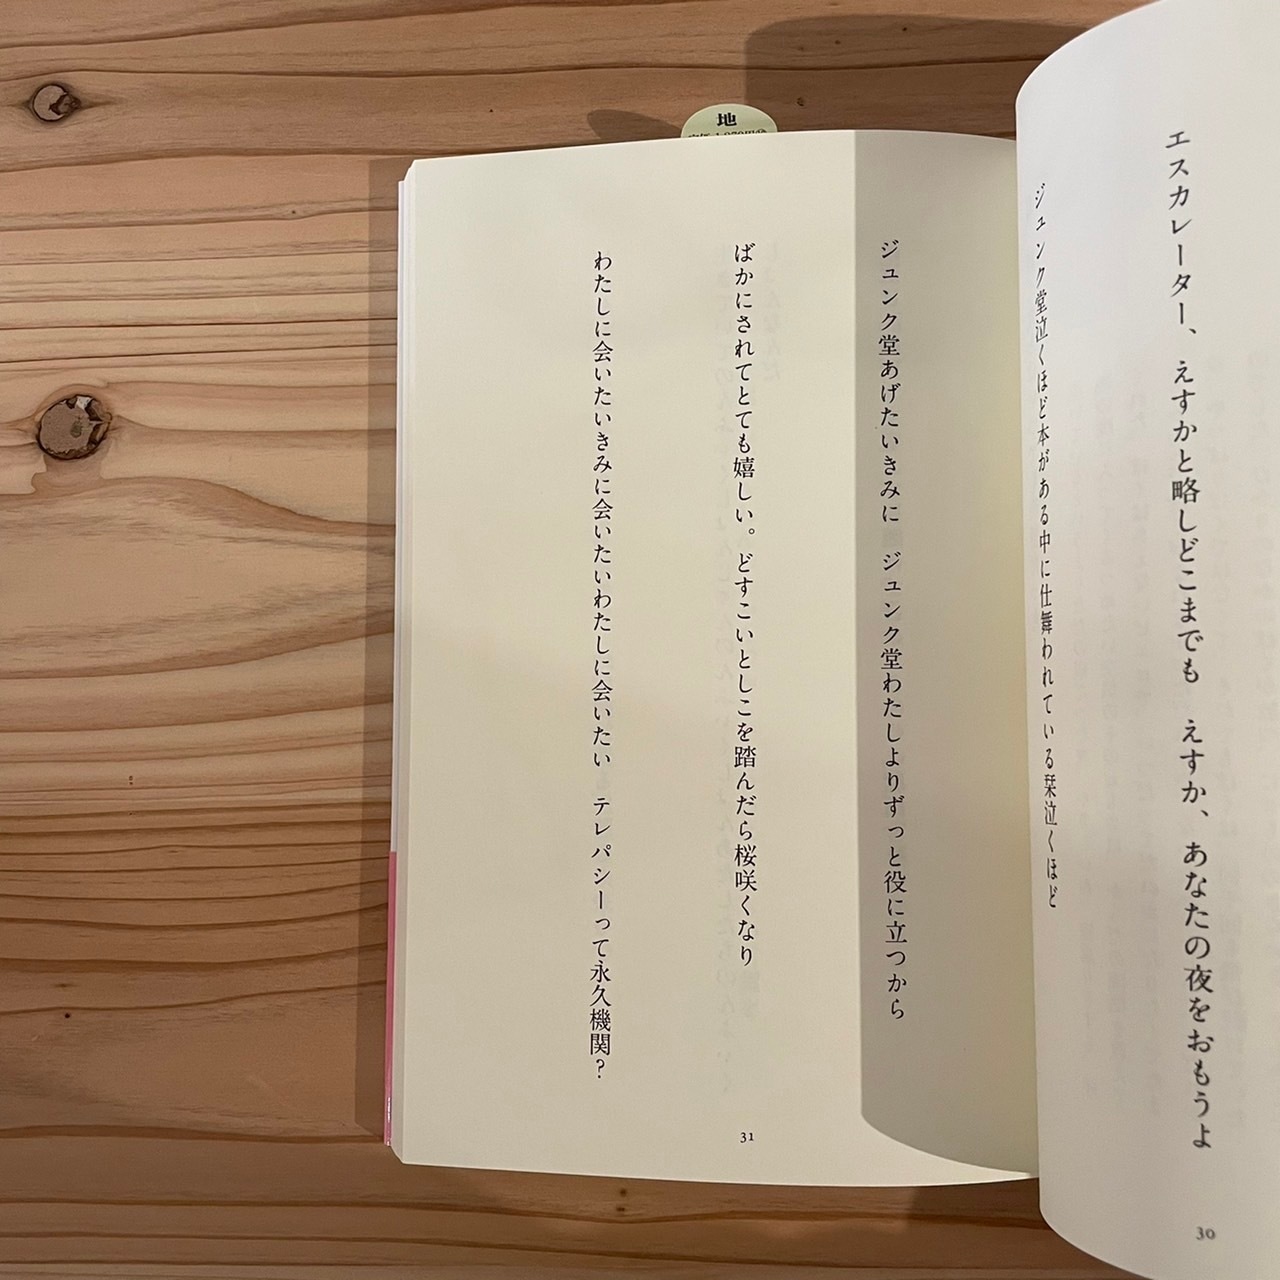 エスカレーター、えすかと略しどこまでも　えすか、あなたの夜をおもうよ
ジュンク堂泣くほど本がある中に仕舞われている栞泣くほど
30
地
ジュンク堂あげたいきみに　ジュンク堂わたしよりずっと役に立つから
ばかにされてとても嬉しい。どすこいとしこを踏んだら桜咲くなり
わたしに会いたいきみに会いたいわたしに会いたい　テレパシーって永久機関?
31